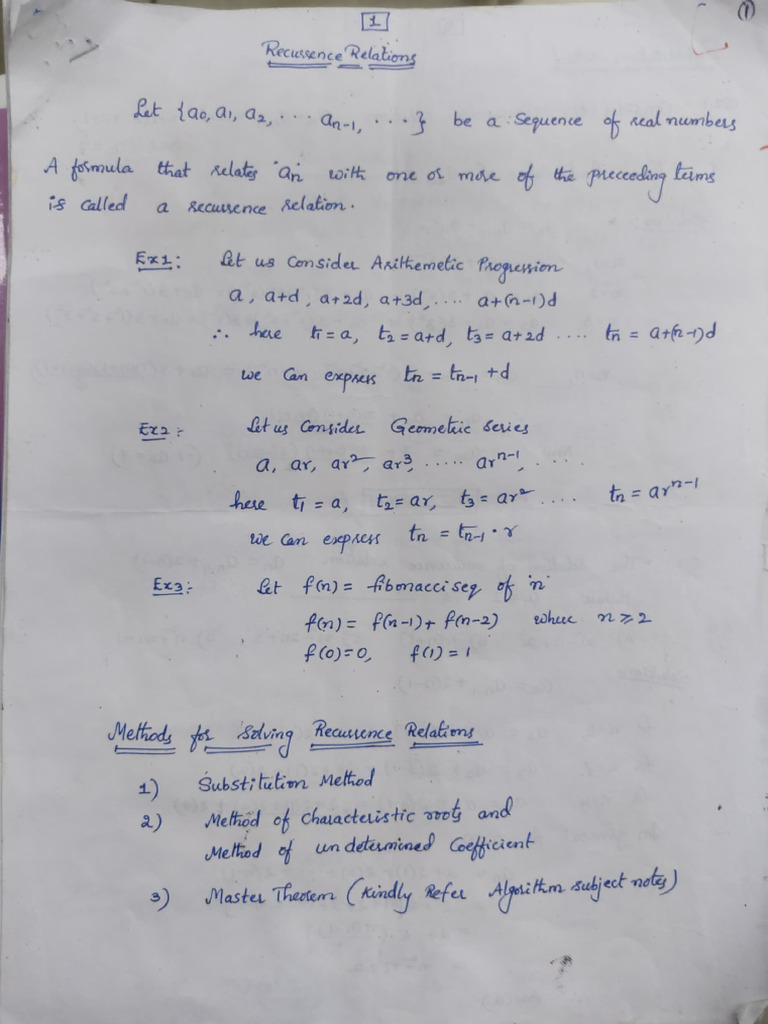 1
(1)
Recurrence Relations
Let {a0, a1, a2, ... an-1, ...} be a sequence of real numbers
A formula that relates 'an' with one or more of the preceeding terms
is called a recurrence relation.
Ex1: Let us Consider Arithemetic Progression
a, a+d, a+2d, a+3d, .... a+(n-1)d
∴ here t1 = a, t2 = a+d, t3 = a+2d .... tn = a+(n-1)d
we Can express tn = tn-1 + d
Ex2: Let us Consider Geometric Series
a, ar, ar², ar³, ..... arⁿ⁻¹, ....
here t1 = a, t2 = ar, t3 = ar² .... tn = arⁿ⁻¹
we can express tn = tn-1 · r
Ex3:- Let f(n) = fibonacci seq of 'n'
f(n) = f(n-1) + f(n-2) where n ≥ 2
f(0) = 0, f(1) = 1
Methods for Solving Recurrence Relations
1) Substitution Method
2) Method of Characteristic roots and
Method of undetermined Coefficient
3) Master Theorem (Kindly Refer Algorithm subject notes)